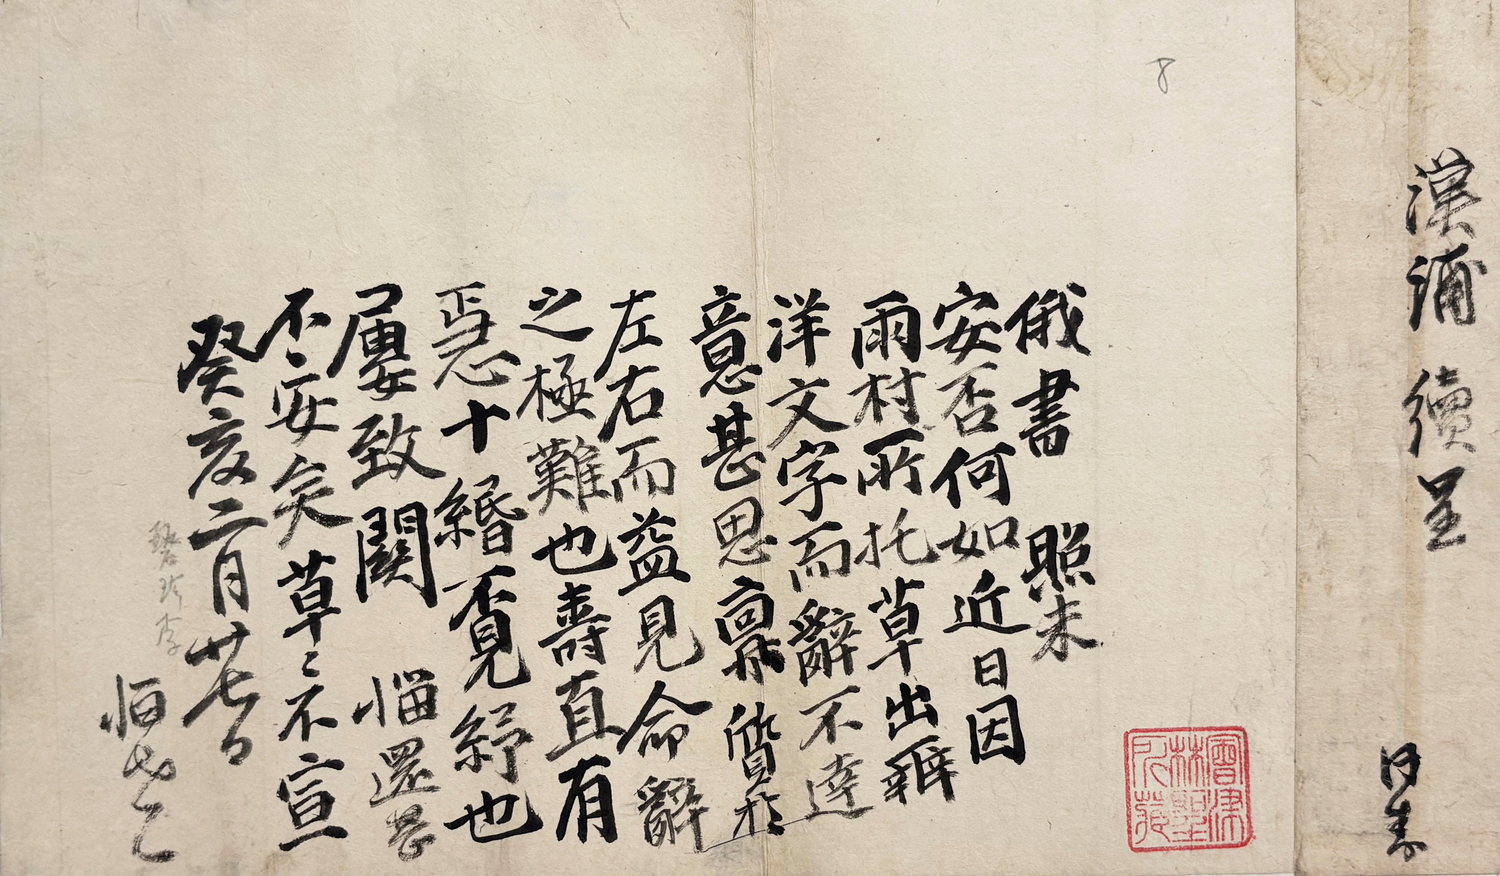 漢浦 續呈
俄書 照未
安否何如近日因
雨村所托草出
洋文字而辭不達
意甚思稟質於
左右而益見命辭
之極難也壽直有
焉十緡覓紓也
屢致關 惱還甚
不安矣草〻不宣
癸亥二月廿七日
8